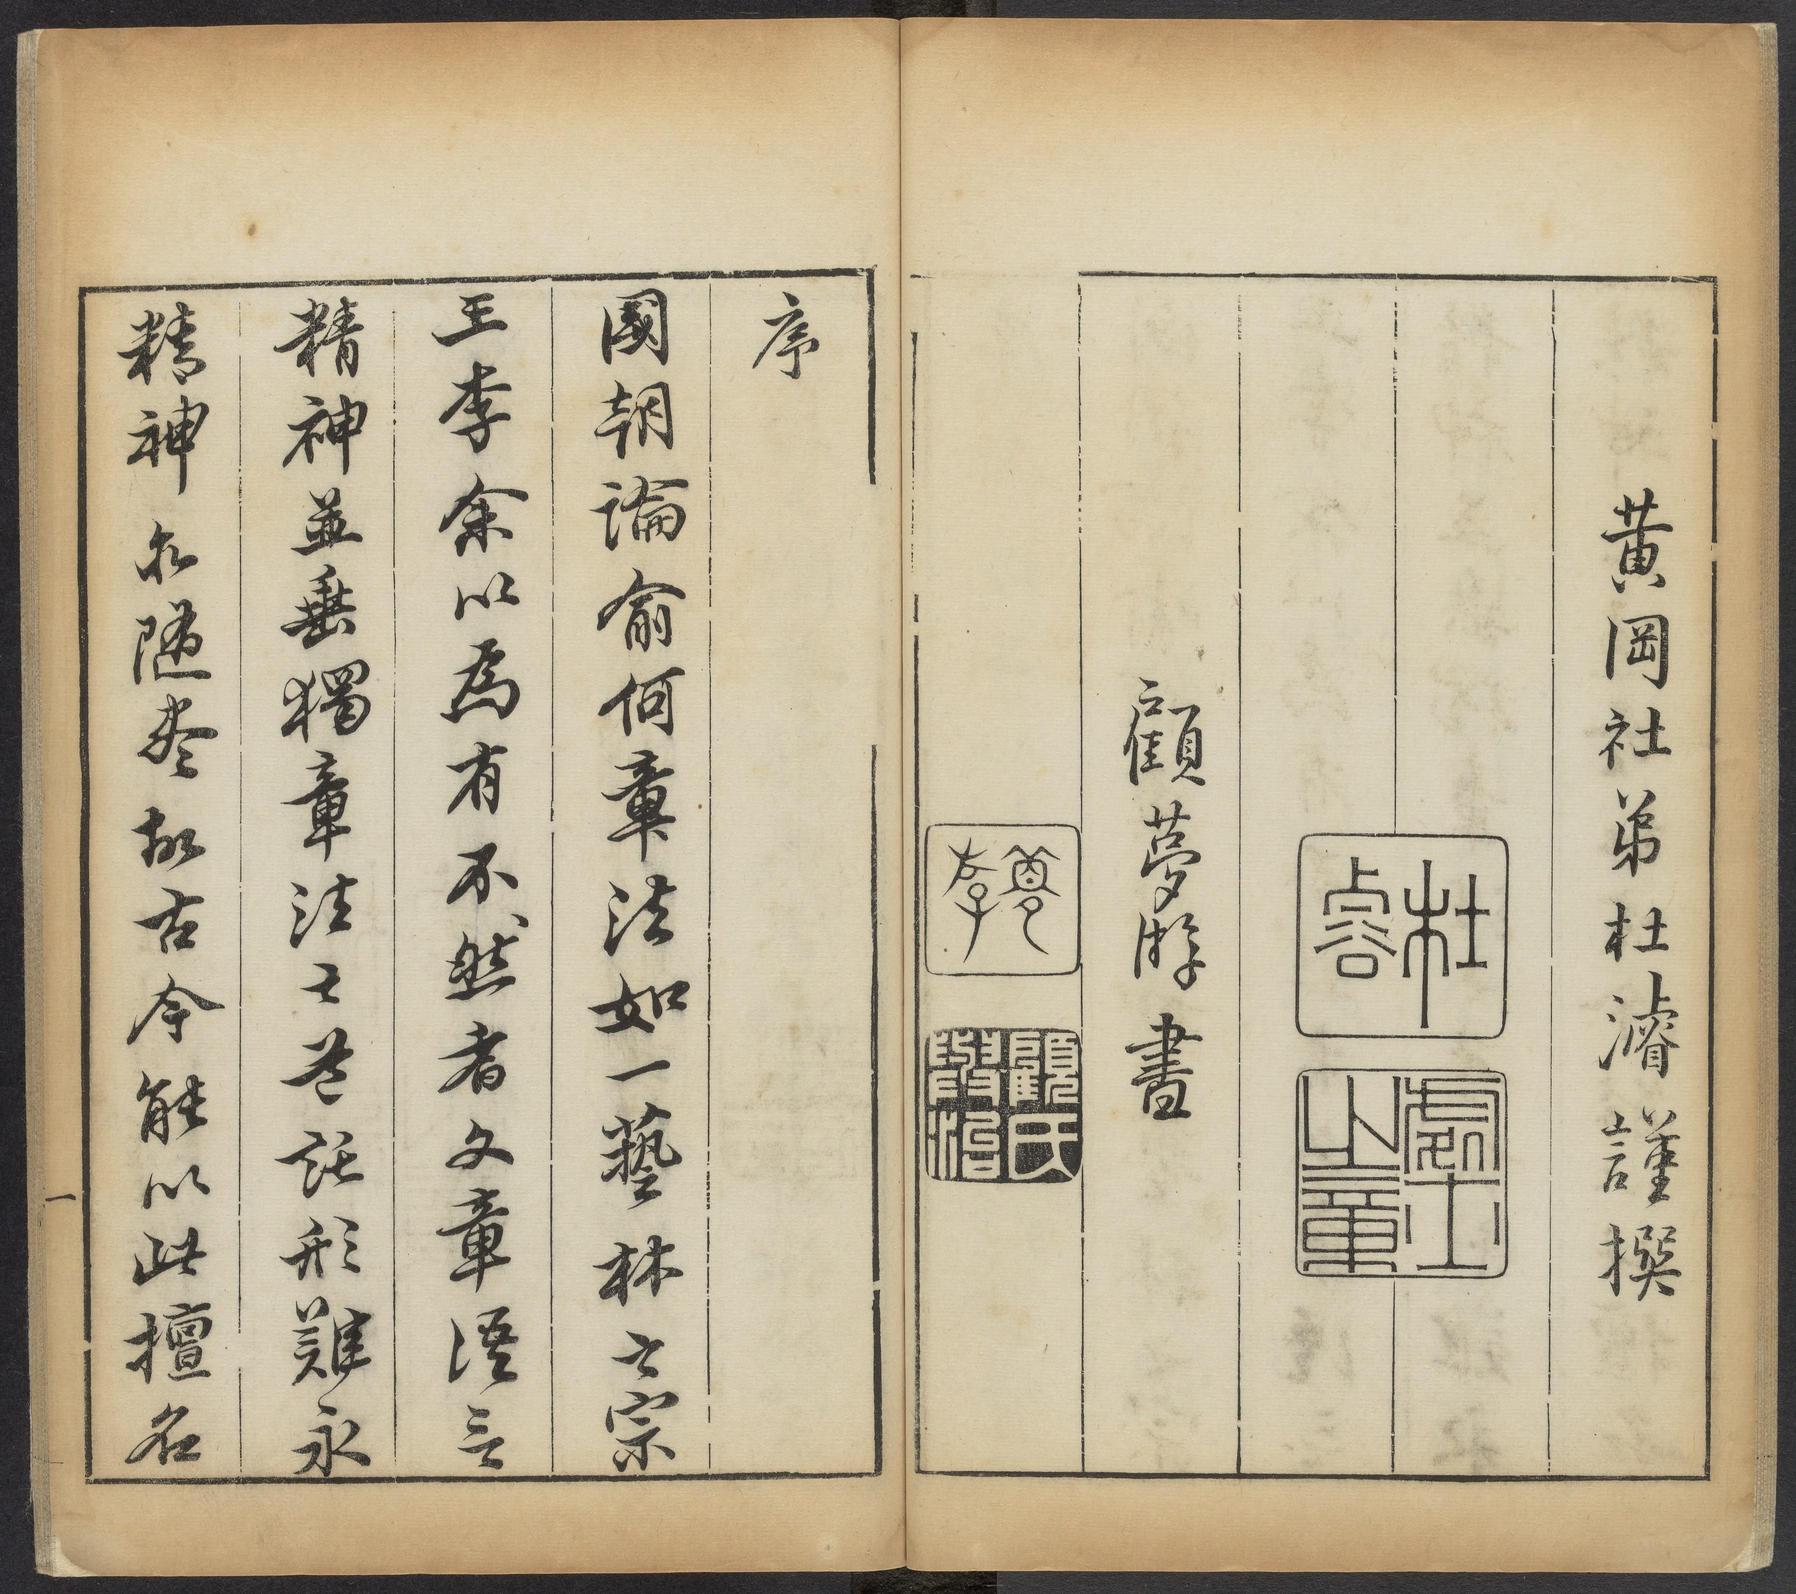 黃岡社弟杜濬謹撰
杜濬
處士之章
顧夢游書
顧氏與治
序
國朝論俞何章法如一藝林之宗
王李余以為有不然者文章語言
精神並垂獨章法之託形難永
精神亦隨盡故古今能以此擅名
一